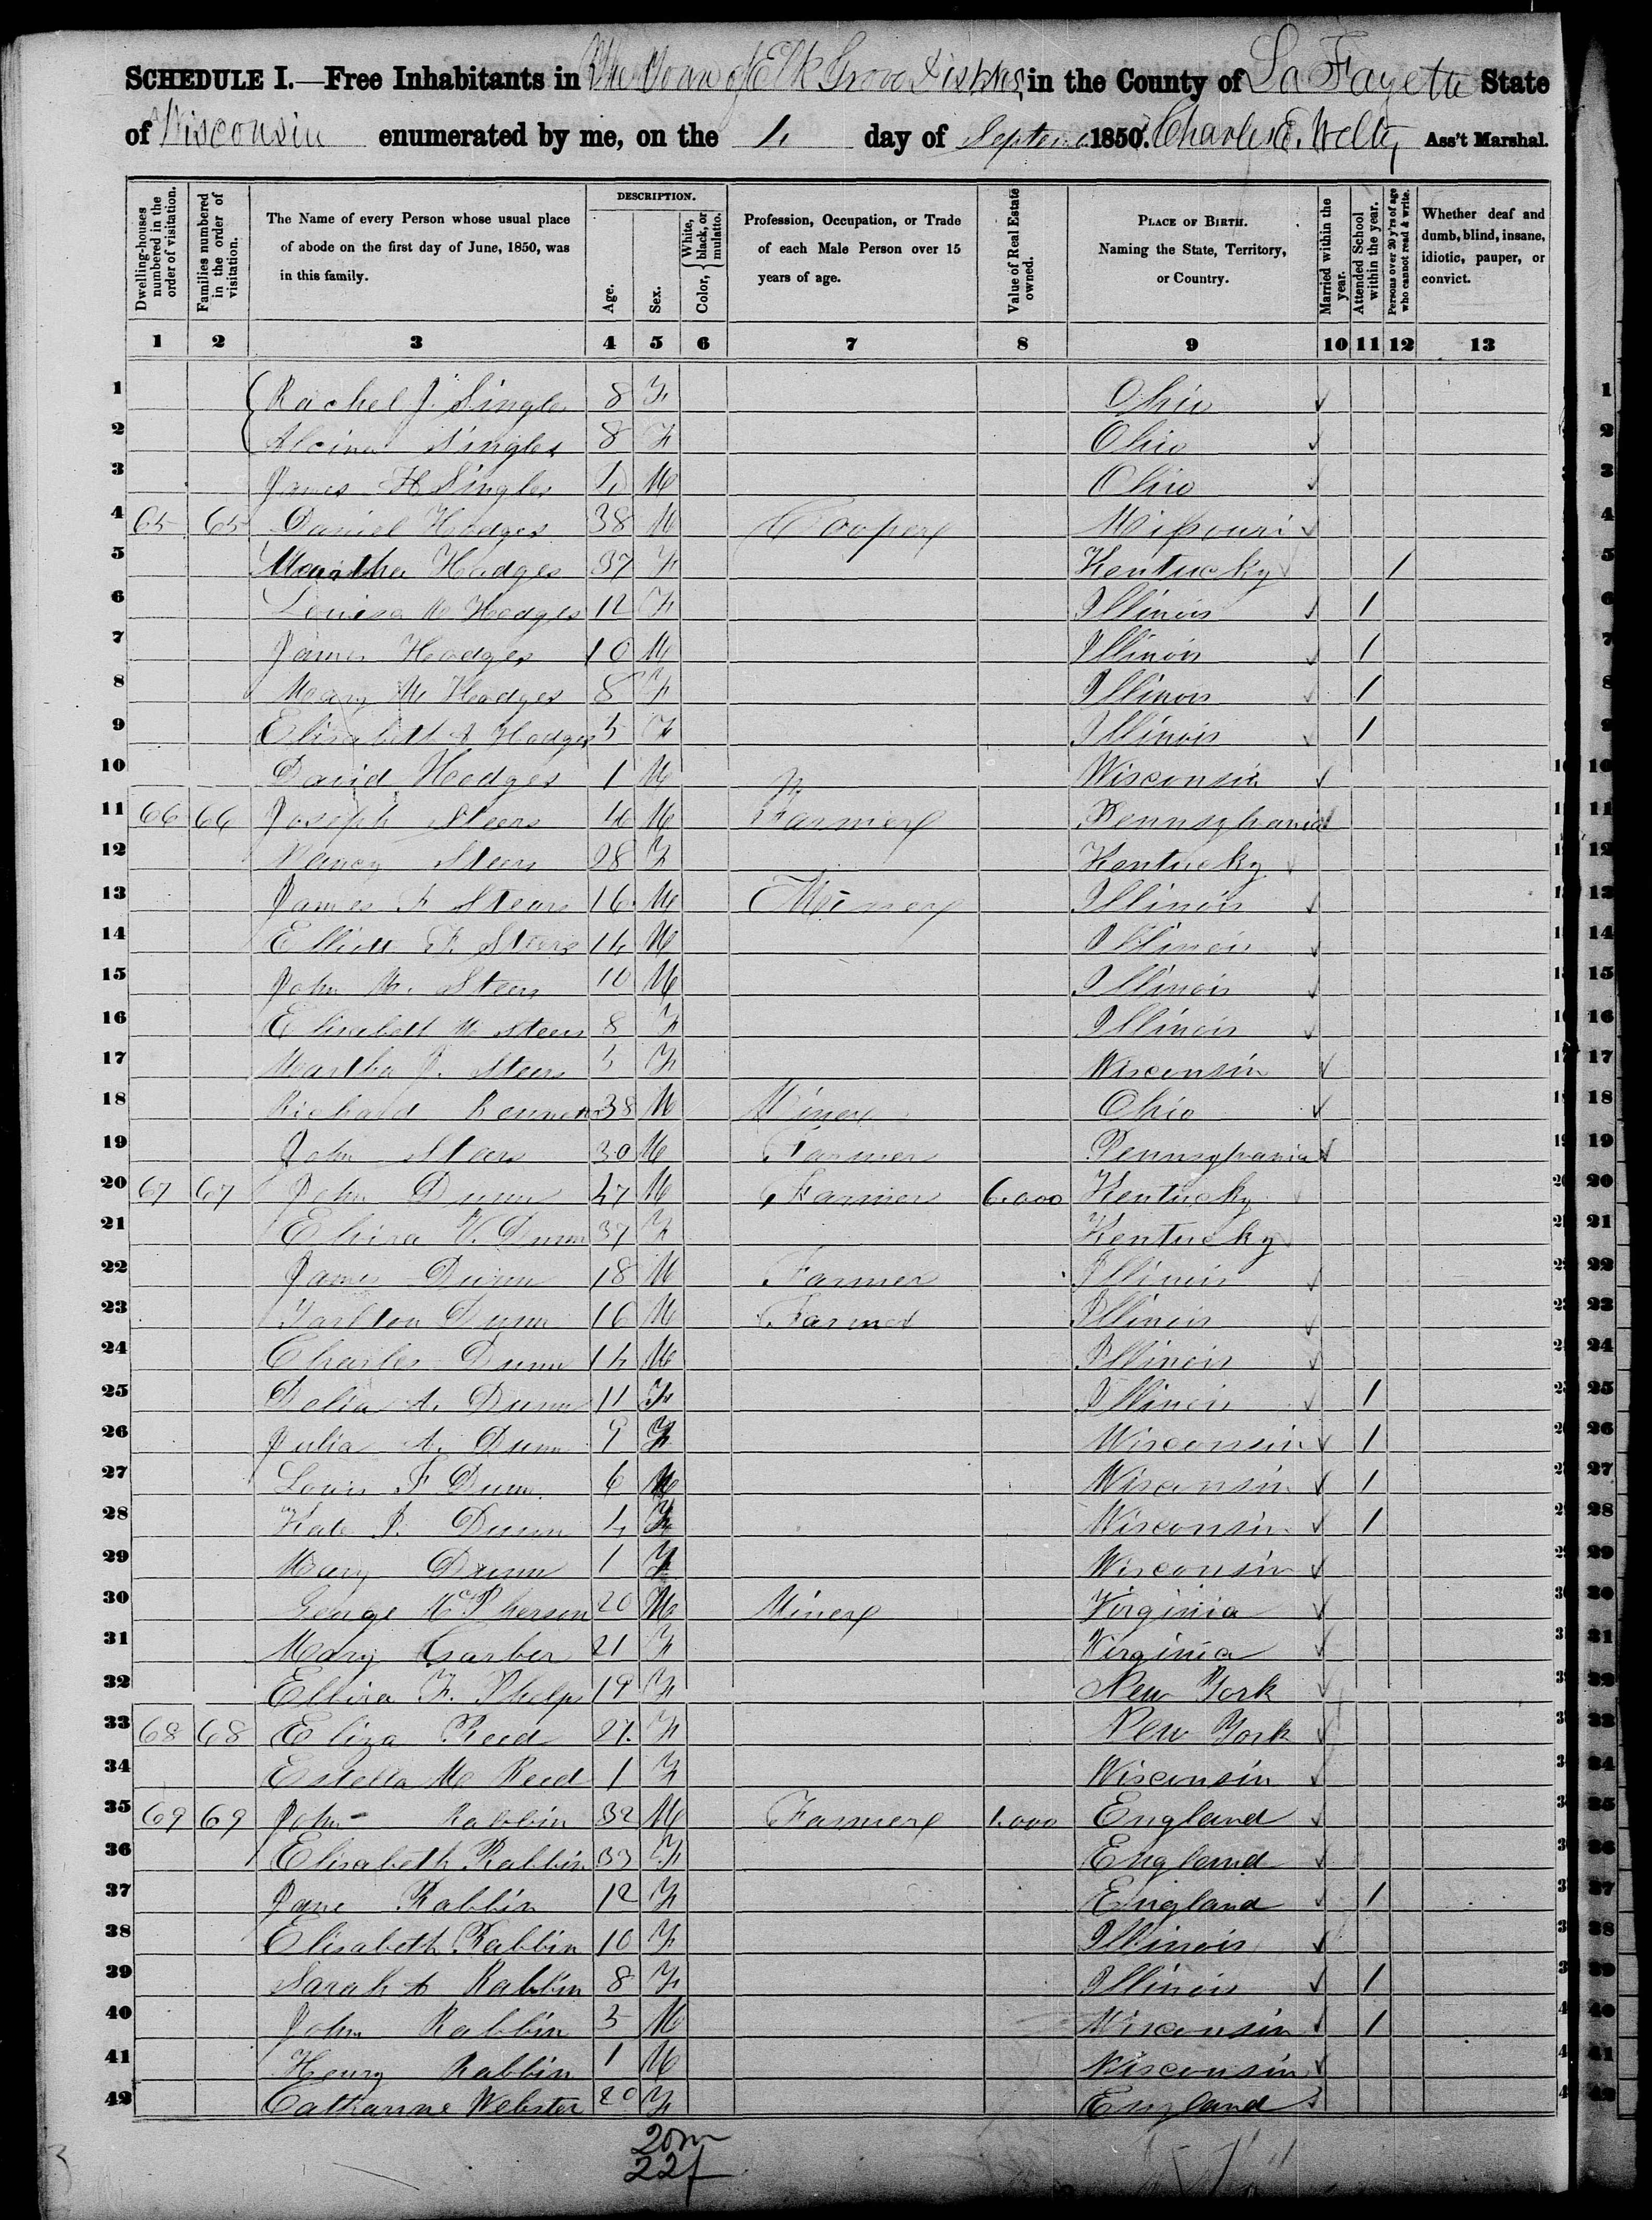 SCHEDULE I.—Free Inhabitants in The Town of Elk Grove District in the County of La Fayette State
of Wisconsin enumerated by me, on the 4 day of September 1850. Charles E. Welty, Ass't Marshal.
DESCRIPTION.
Dwelling-houses numbered in the order of visitation.
Families numbered in the order of visitation.
The Name of every Person whose usual place of abode on the first day of June, 1850, was in this family.
Age.
Sex.
Color, { White, black, or mulatto.
Profession, Occupation, or Trade of each Male Person over 15 years of age.
Value of Real Estate owned.
PLACE OF BIRTH. Naming the State, Territory, or Country.
Married within the year.
Attended School within the year.
Persons over 20 y'rs of age who cannot read & write.
Whether deaf and dumb, blind, insane, idiotic, pauper, or convict.
1 2 3 4 5 6 7 8 9 10 11 12 13
1 Rachel J. Singles 8 F Ohio 1
2 Alcina Singles 8 F Ohio 2
3 James H Singles 4 M Ohio 3
4 65 65 Daniel Hodges 38 M Cooper Missouri 4
5 Martha Hodges 37 F Kentucky 1 5
6 Louisa M Hodges 12 F Illinois 1 6
7 James Hodges 10 M Illinois 1 7
8 Mary M Hodges 8 F Illinois 1 8
9 Elisabeth A Hodges 5 F Illinois 1 9
10 David Hodges 1 M Wisconsin 10
11 66 66 Joseph Steers 46 M Farmer Pennsylvania 11
12 Nancy Steers 28 F Kentucky 12
13 James F Steers 16 M Miner Illinois 13
14 Elliott F. Steers 14 M Illinois 14
15 John M. Steers 10 M Illinois 15
16 Elisabeth M Steers 8 F Illinois 16
17 Martha J. Steers 5 F Wisconsin 17
18 Richard 38 M Miner Ohio 18
19 John Steers 30 M Farmer Pennsylvania 19
20 67 67 John Dunn 47 M Farmer 6.000 Kentucky 20
21 Elvira V. Dunn 37 F Kentucky 21
22 James Dunn 18 M Farmer Illinois 22
23 Tarlton Dunn 16 M Farmer Illinois 23
24 Charles Dunn 14 M Illinois 24
25 Delia A. Dunn 11 F Illinois 1 25
26 Julia A. Dunn 9 F Wisconsin 1 26
27 Louis F Dunn 6 M Wisconsin 1 27
28 Kate J. Dunn 4 F Wisconsin 1 28
29 Mary Dunn 1 F Wisconsin 29
30 George McPherson 20 M Miner Virginia 30
31 Mary Garber 21 F Virginia 31
32 Elvira F. Phelps 19 F New York 32
33 68 68 Eliza Reed 27. F New York 33
34 Estella M Reed 1 F Wisconsin 34
35 69 69 John Rabbin 32 M Farmer 1.000 England 35
36 Elisabeth Rabbin 33 F England 36
37 Jane Rabbin 12 F England 1 37
38 Elisabeth Rabbin 10 F Illinois 38
39 Sarah A Rabbin 8 F Illinois 1 39
40 John Rabbin 5 M Wisconsin 1 40
41 Henry Rabbin 1 M Wisconsin 41
42 Catharine Webster 20 F England 42
20m
22f